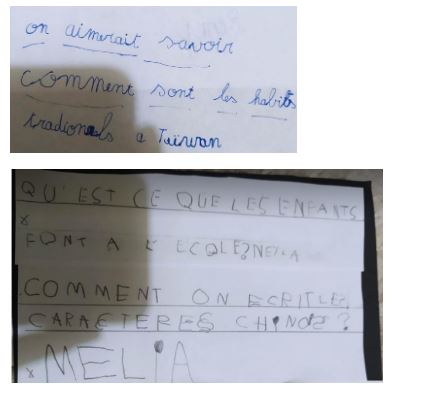 on aimerait savoir
comment sont les habits
tradionels a Taïwan
QU'EST CE QUE LES ENFANTS
x
FONT A L'ECOLE?NELIA
COMMENT ON ECRIT LES
CARACTERES CHINOIS?
x MELIA